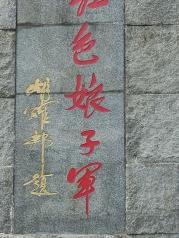 红色娘子军
胡耀邦题